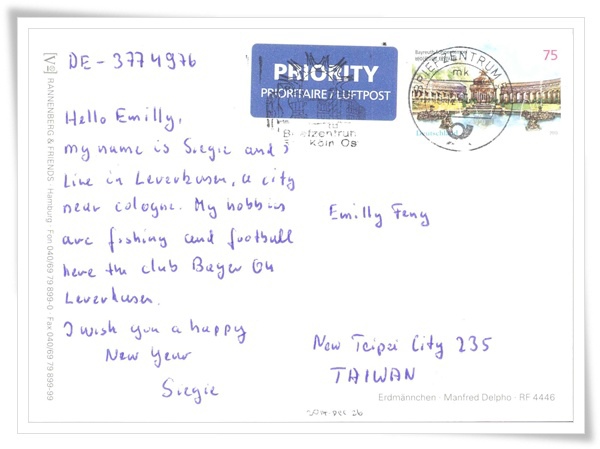 DE-3774976
PRIORITY
PRIORITAIRE / LUFTPOST
75
BRIEFZENTRUM
mk
Briefzentrum
Köln Os
Hello Emilly,
my name is Siegie and i
live in Leverkusen, a city
near cologne. My hobbies
are fishing and football
here the club Bayer 04
Leverkusen.
I wish you a happy
New Year
Siegie
Emilly Feng
New Teipei City 235
TAIWAN
Erdmännchen · Manfred Delpho · RF 4446
RANNENBERG & FRIENDS · Hamburg · Fon 040/69 79 899-0 Fax 040/69 79 899-99